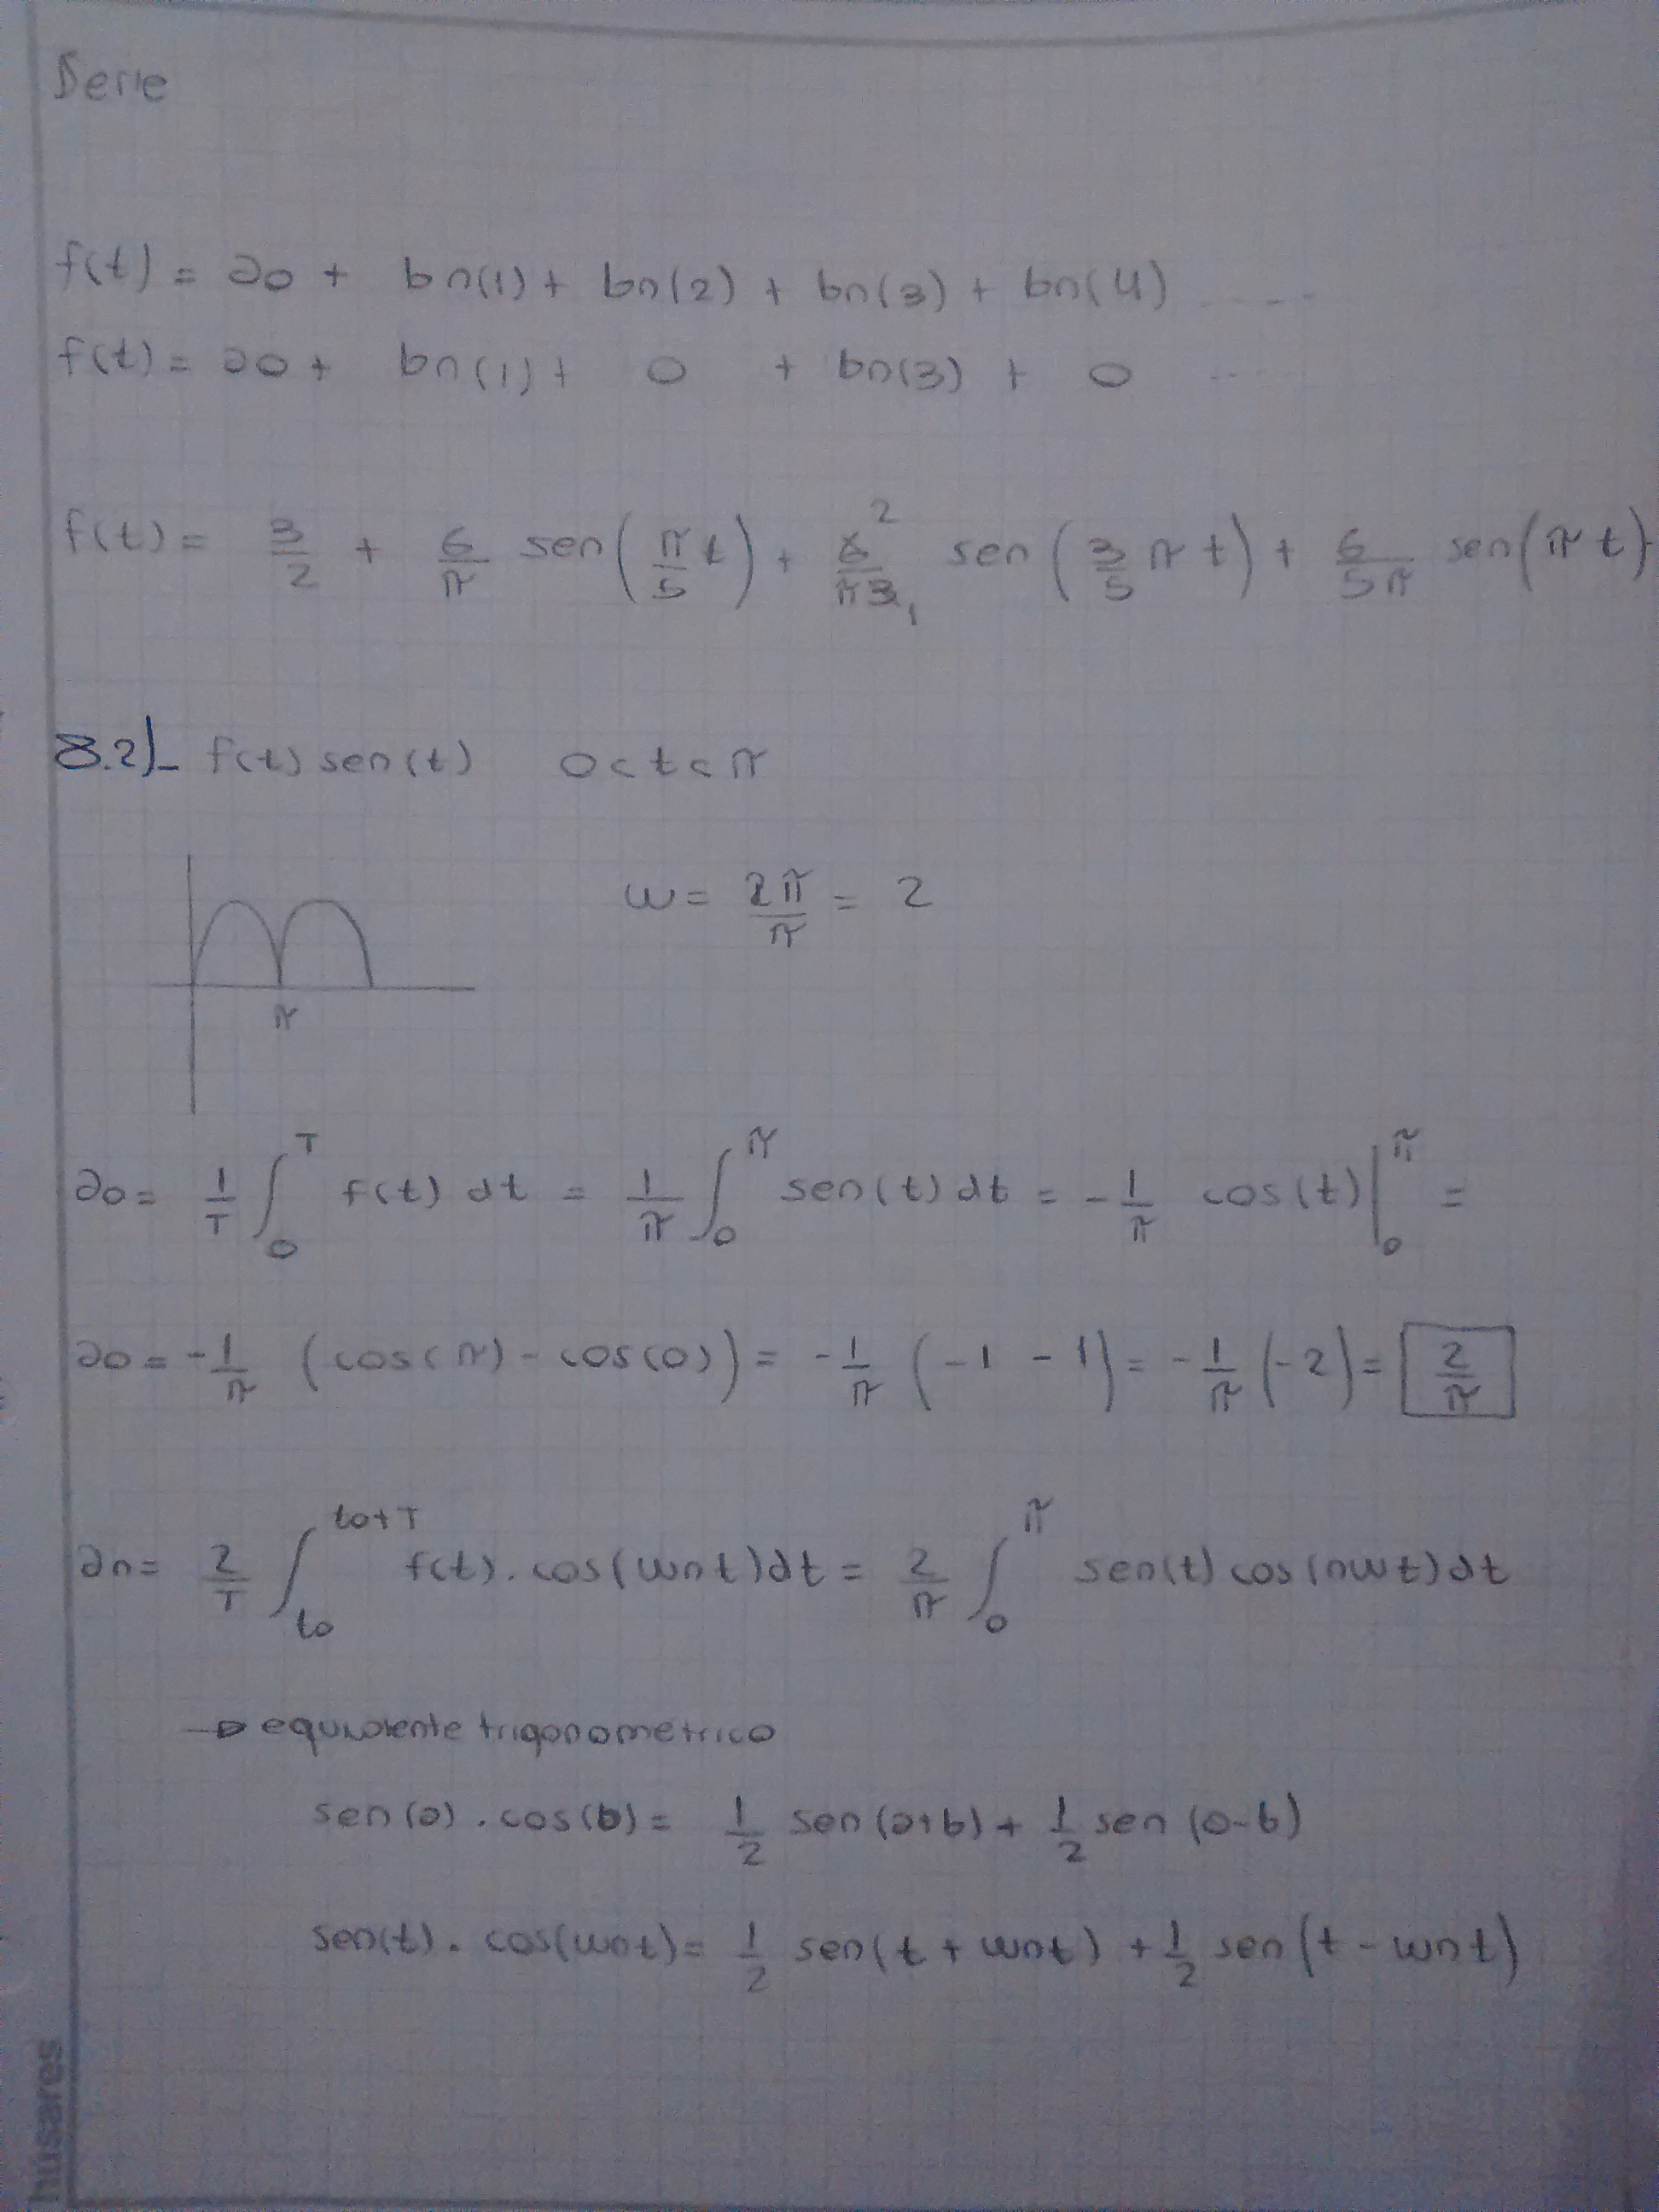 Serie
f(t) = a0 + bn(1) + bn(2) + bn(3) + bn(4) ....
f(t) = a0 + bn(1) + 0 + bn(3) + 0 ...
f(t) = 3/2 + 6/π sen(π/5 t) + 6/π3 2 1 sen(3/5 π t) + 6/5π sen(π t)
8.2)_ f(t) sen(t) 0<t<π
w = 2π/π = 2
π
a0 = 1/T ∫_0^T f(t) dt = 1/π ∫_0^π sen(t) dt = -1/π cos(t) |_0^π =
a0 = -1/π (cos(π) - cos(0)) = -1/π (-1 - 1) = -1/π (-2) = 2/π
an = 2/T ∫_to^to+T f(t) . cos(wnt) dt = 2/π ∫_0^π sen(t) cos(nwt) dt
→ equivalente trigonometrico
sen(a) . cos(b) = 1/2 sen(a+b) + 1/2 sen(a-b)
sen(t) . cos(wnt) = 1/2 sen(t + wnt) + 1/2 sen(t - wnt)
husares